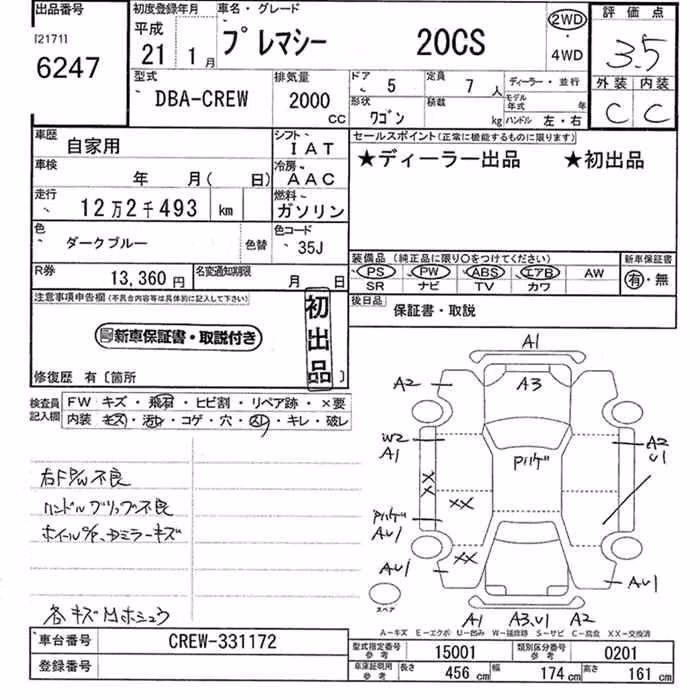 出品番号
[21711
6247
初度登録年月
平成
21 1月
車名・グレード
プレマシー 20CS
2WD
・
4WD
評価点
3.5
外装 内装
C C
型式
DBA-CREW
排気量
2000 CC
ドア 5
定員 7人
ディーラー・並行
形状 ワゴン
積載 kg
モデル年式 年
ハンドル 左・右
車歴 自家用
シフト IAT
セールスポイント(正常に機能するものに限ります)
★ディーラー出品 ★初出品
車検 年 月( 日)
冷房 AAC
走行 12万2千493 km
燃料 ガソリン
色 ダークブルー 色替
色コード 35J
装備品(純正品に限り○をつけてください)
新車保証書
PS PW ABS エアB AW
SR ナビ TV カワ
有・無
R券 13,360円
名変通知期限 月 日
後日品 保証書・取説
注意事項申告欄(不具合内容等は具体的に記入して下さい)
新車保証書・取説付き
初出品
修復歴 有〔箇所 〕
検査員記入欄
FW キズ・飛石・ヒビ割・リペア跡・×要
内装 キズ・汚れ・コゲ・穴・スレ・キレ・破レ
右FP/W不良
ハンドルグリップ不良
ホイールO/P、Dミラーキズ
各キズMホシュウ
A1
A2 A3
W2 A1
A2 U1
Pハゲ
XX
XX
Pハゲ AU1
AU1 XX
AU1
スペア
A1 A3.U1 A2
A-キズ E-エクボ U-凹み W-補修跡 S-サビ C-腐食 XX-交換済
車台番号 CREW-331172
登録番号
型式指定番号 参考 15001
類別区分番号 参考 0201
車庫証明用 参考 長さ 456 cm 幅 174 cm 高さ 161 cm